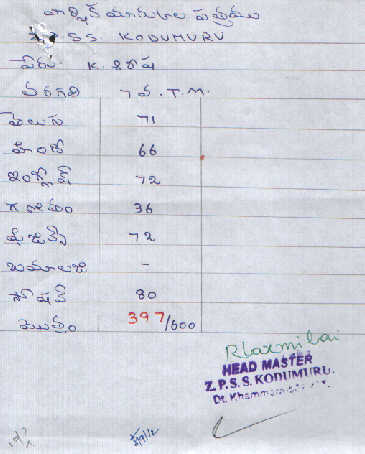 వార్షిక మార్కుల పత్రము
Z.P.S.S. KODUMURU
పేరు K. శిరీష
తరగతి 7 వ. T.M.
తెలుగు 71
హిందీ 66
ఇంగ్లీష్ 72
గణితం 36
72
-
సోషల్ 80
మొత్తం 397/600
R Laxmi bai
HEAD MASTER
Z.P.S.S. KODUMURU.
Dt. Khammam